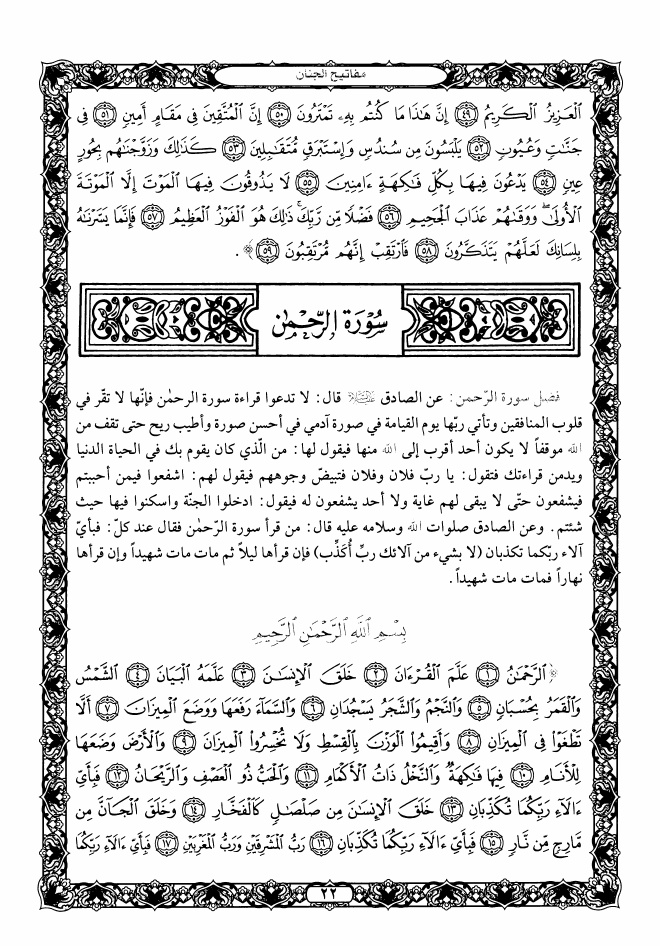 مفاتيح الجنان
ٱلْعَزِيزُ ٱلْكَرِيمُ ﴿٤٩﴾ إِنَّ هَٰذَا مَا كُنتُم بِهِۦ تَمْتَرُونَ ﴿٥٠﴾ إِنَّ ٱلْمُتَّقِينَ فِى مَقَامٍ أَمِينٍ ﴿٥١﴾ فِى
جَنَّٰتٍ وَعُيُونٍ ﴿٥٢﴾ يَلْبَسُونَ مِن سُندُسٍ وَإِسْتَبْرَقٍ مُّتَقَٰبِلِينَ ﴿٥٣﴾ كَذَٰلِكَ وَزَوَّجْنَٰهُم بِحُورٍ
عِينٍ ﴿٥٤﴾ يَدْعُونَ فِيهَا بِكُلِّ فَٰكِهَةٍ ءَامِنِينَ ﴿٥٥﴾ لَا يَذُوقُونَ فِيهَا ٱلْمَوْتَ إِلَّا ٱلْمَوْتَةَ
ٱلْأُولَىٰ وَوَقَىٰهُمْ عَذَابَ ٱلْجَحِيمِ ﴿٥٦﴾ فَضْلًا مِّن رَّبِّكَ ۚ ذَٰلِكَ هُوَ ٱلْفَوْزُ ٱلْعَظِيمُ ﴿٥٧﴾ فَإِنَّمَا يَسَّرْنَٰهُ
بِلِسَانِكَ لَعَلَّهُمْ يَتَذَكَّرُونَ ﴿٥٨﴾ فَٱرْتَقِبْ إِنَّهُم مُّرْتَقِبُونَ ﴿٥٩﴾ ﴾.
سُورَة الرَّحْمٰن
فضل سورة الرّحمن: عن الصادق عليه السلام قال: لا تدعوا قراءة سورة الرحمٰن فإنّها لا تقّر في
قلوب المنافقين وتأتي ربّها يوم القيامة في صورة آدمي في أحسن صورة وأطيب ريح حتى تقف من
الله موقفاً لا يكون أحد أقرب إلى الله منها فيقول لها: من الّذي كان يقوم بك في الحياة الدنيا
ويدمن قراءتك فتقول: يا ربّ فلان وفلان فتبيضّ وجوههم فيقول لهم: اشفعوا فيمن أحببتم
فيشفعون حتّى لا يبقى لهم غاية ولا أحد يشفعون له فيقول: ادخلوا الجنّة واسكنوا فيها حيث
شئتم. وعن الصادق صلوات الله وسلامه عليه قال: من قرأ سورة الرحمٰن فقال عند كلّ: فبأيّ
آلاء ربّكما تكذبان (لا بشيء من آلائك ربِّ أُكَذِّب) فإن قرأها ليلاً ثم مات مات شهيداً وإن قرأها
نهاراً فمات مات شهيداً.
بِسْمِ ٱللَّهِ ٱلرَّحْمَٰنِ ٱلرَّحِيمِ
﴿ٱلرَّحْمَٰنُ ﴿١﴾ عَلَّمَ ٱلْقُرْءَانَ ﴿٢﴾ خَلَقَ ٱلْإِنسَٰنَ ﴿٣﴾ عَلَّمَهُ ٱلْبَيَانَ ﴿٤﴾ ٱلشَّمْسُ
وَٱلْقَمَرُ بِحُسْبَانٍ ﴿٥﴾ وَٱلنَّجْمُ وَٱلشَّجَرُ يَسْجُدَانِ ﴿٦﴾ وَٱلسَّمَآءَ رَفَعَهَا وَوَضَعَ ٱلْمِيزَانَ ﴿٧﴾ أَلَّا
تَطْغَوْا۟ فِى ٱلْمِيزَانِ ﴿٨﴾ وَأَقِيمُوا۟ ٱلْوَزْنَ بِٱلْقِسْطِ وَلَا تُخْسِرُوا۟ ٱلْمِيزَانَ ﴿٩﴾ وَٱلْأَرْضَ وَضَعَهَا
لِلْأَنَامِ ﴿١٠﴾ فِيهَا فَٰكِهَةٌ وَٱلنَّخْلُ ذَاتُ ٱلْأَكْمَامِ ﴿١١﴾ وَٱلْحَبُّ ذُو ٱلْعَصْفِ وَٱلرَّيْحَانُ ﴿١٢﴾ فَبِأَىِّ
ءَالَآءِ رَبِّكُمَا تُكَذِّبَانِ ﴿١٣﴾ خَلَقَ ٱلْإِنسَٰنَ مِن صَلْصَٰلٍ كَٱلْفَخَّارِ ﴿١٤﴾ وَخَلَقَ ٱلْجَآنَّ مِن
مَّارِجٍ مِّن نَّارٍ ﴿١٥﴾ فَبِأَىِّ ءَالَآءِ رَبِّكُمَا تُكَذِّبَانِ ﴿١٦﴾ رَبُّ ٱلْمَشْرِقَيْنِ وَرَبُّ ٱلْمَغْرِبَيْنِ ﴿١٧﴾ فَبِأَىِّ ءَالَآءِ رَبِّكُمَا
٢٢